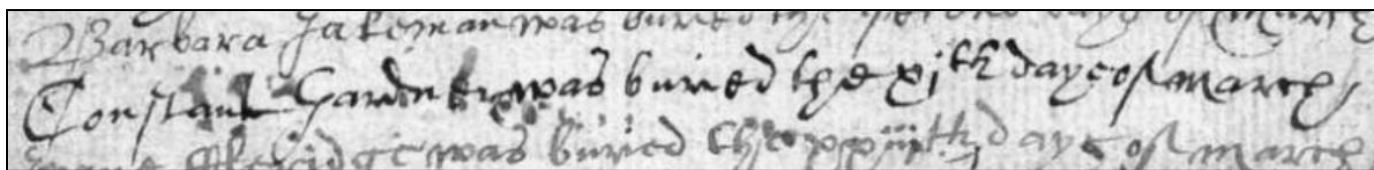 Barbara Jakeman was buried the second daye of march
Constant Gardner was buried the xith daye of march
was buried the daye of march